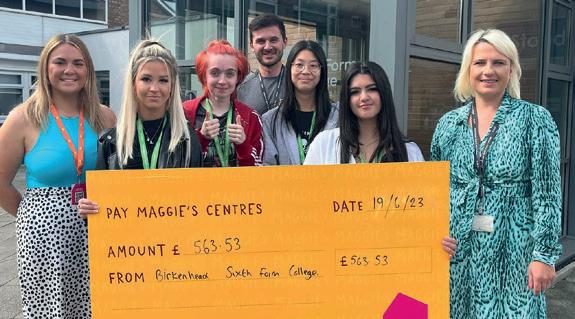 Form
PAY MAGGIE'S CENTRES DATE 19/6/23
AMOUNT £ 563.53
FROM Birkenhead Sixth Form College. £563.53